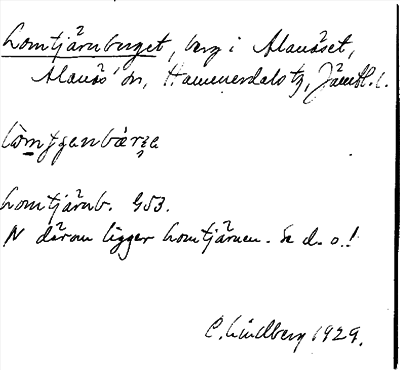 Lomtjärnberget, berg i Alanäset,
Alanäs sn, Hammerdals tg, Jämtl. l.
Lomtjärnb. G53.
N därom ligger Lomtjärnen. Se d. o.!
C. Lindberg 1929.